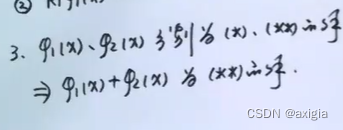 ② 
3. φ₁(x)、φ₂(x) 分别为 (*)、(**) 的解
⇒ φ₁(x)+φ₂(x) 为 (**) 的解.
CSDN @axigia